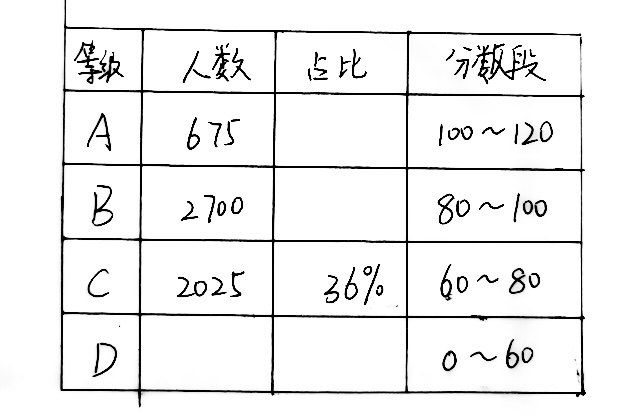 等级 人数 占比 分数段
A 675 100~120
B 2700 80~100
C 2025 36% 60~80
D 0~60